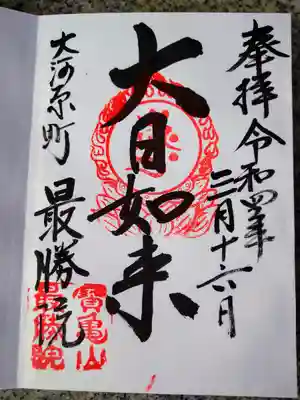 奉拝 令和四年
三月十六日
大日如来
大河原町 最勝院
寶亀山
最勝院